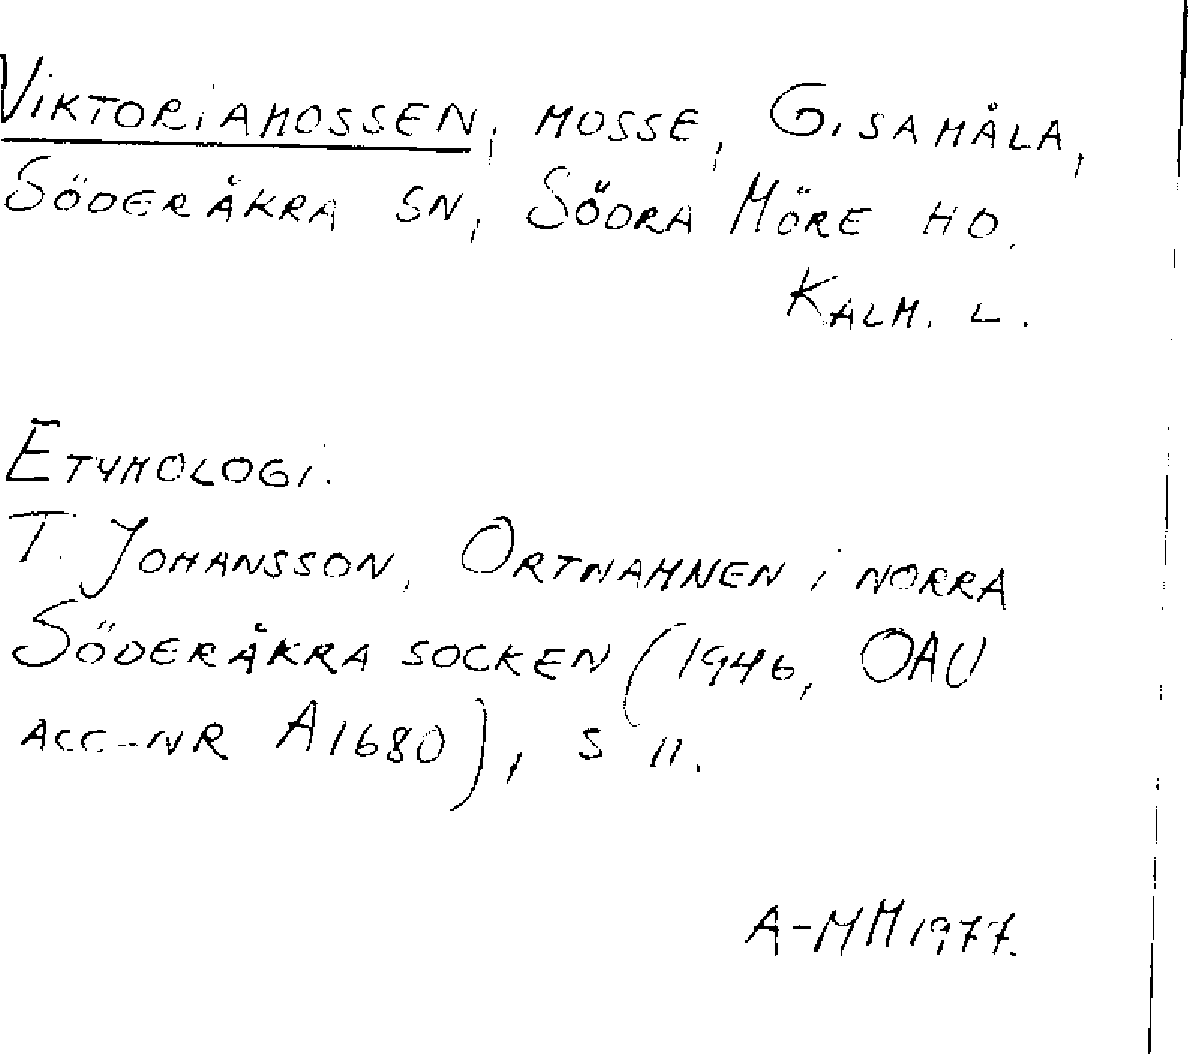 VIKTORIAMOSSEN, MOSSE, GISAMÅLA,
SÖDERÅKRA SN, SÖDRA MÖRE HD.
KALM. L.
ETYMOLOGI.
T. JOHANSSON, ORTNAMNEN i NORRA
SÖDERÅKRA SOCKEN (1946, OAU
ACC-NR A1680), S 11.
A-MM 1977.